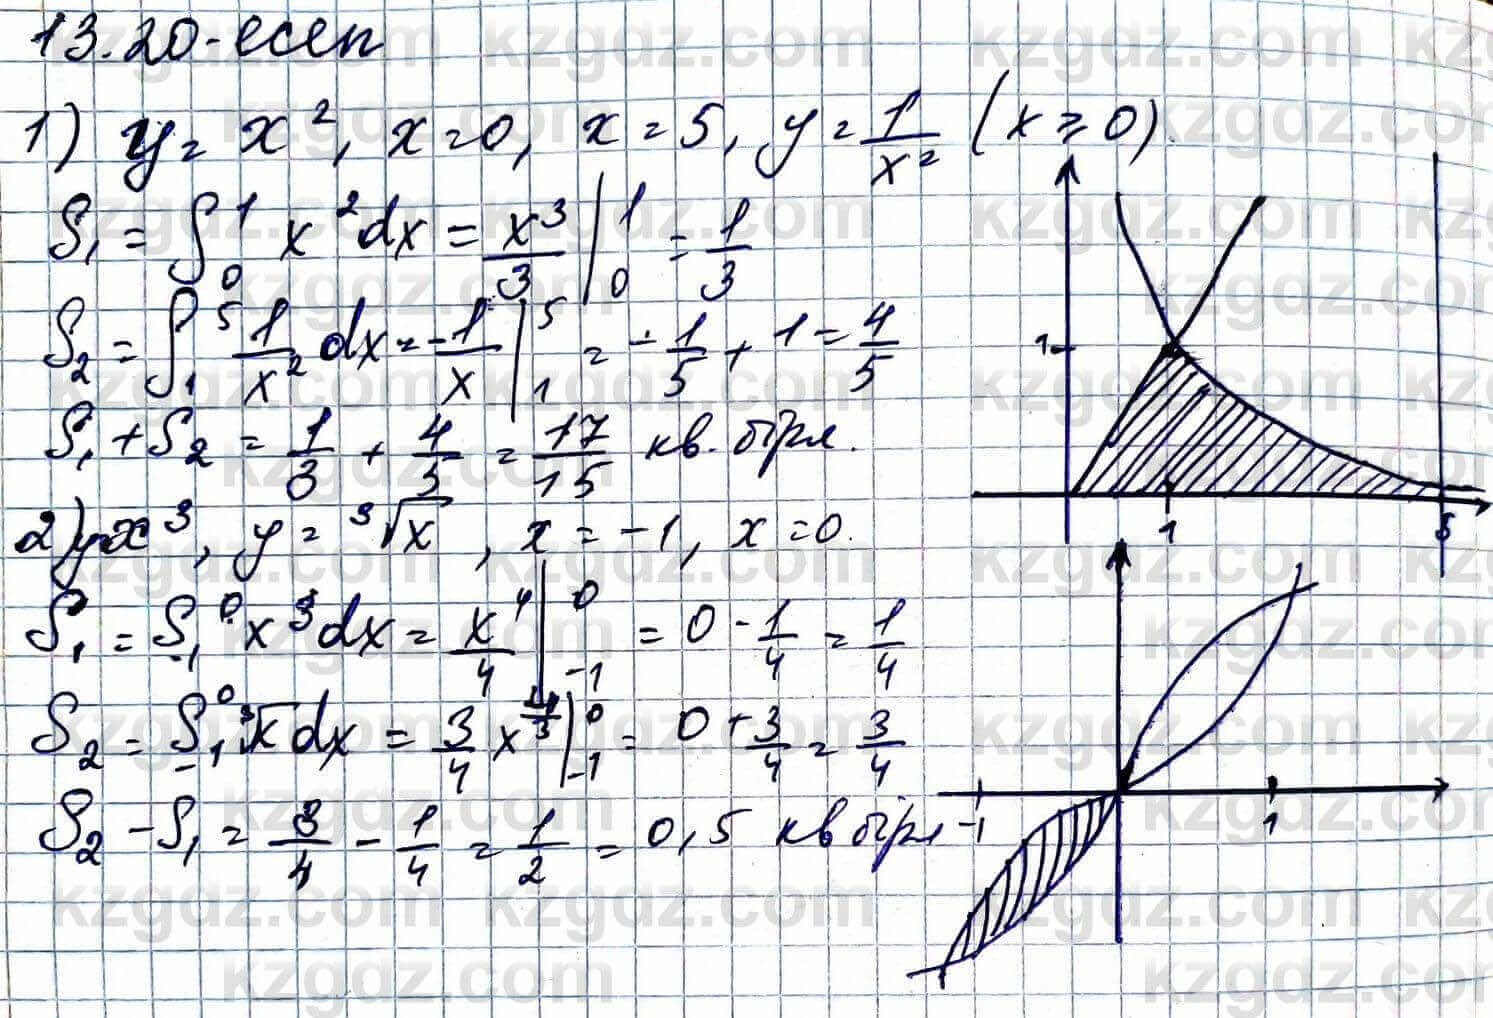 13.20-есеп
1) y = x², x=0, x=5, y = 1/x² (x ≥ 0).
S₁ = ∫₀¹ x²dx = x³/3 |₀¹ = 1/3
S₂ = ∫₁⁵ 1/x² dx = -1/x |₁⁵ = -1/5 + 1 = 4/5
S₁ + S₂ = 1/3 + 4/5 = 17/15 кв. бірл.
2) y=x³, y = ³√x, x = -1, x = 0.
S₁ = ∫₋₁⁰ x³dx = x⁴/4 |₋₁⁰ = 0 - 1/4 = 1/4
S₂ = ∫₋₁⁰ ³√x dx = 3/4 x^(4/3) |₋₁⁰ = 0 + 3/4 = 3/4
S₂ - S₁ = 3/4 - 1/4 = 1/2 = 0,5 кв бірл
1
1
5
-1
1
kzgdz.com